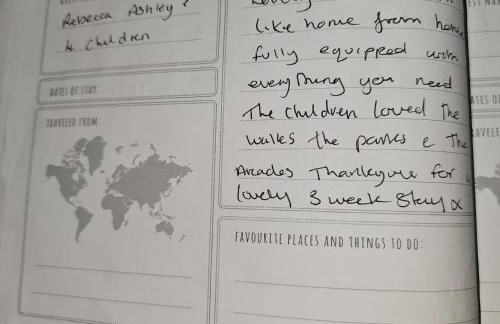 Rebecca Ashley &
4 children
DATES OF STAY:
TRAVELED FROM:
like home from home
fully equipped with
everything you need
The children loved the
walks the parks & the
Arcades Thankyou for
lovely 3 week stay x
FAVOURITE PLACES AND THINGS TO DO: